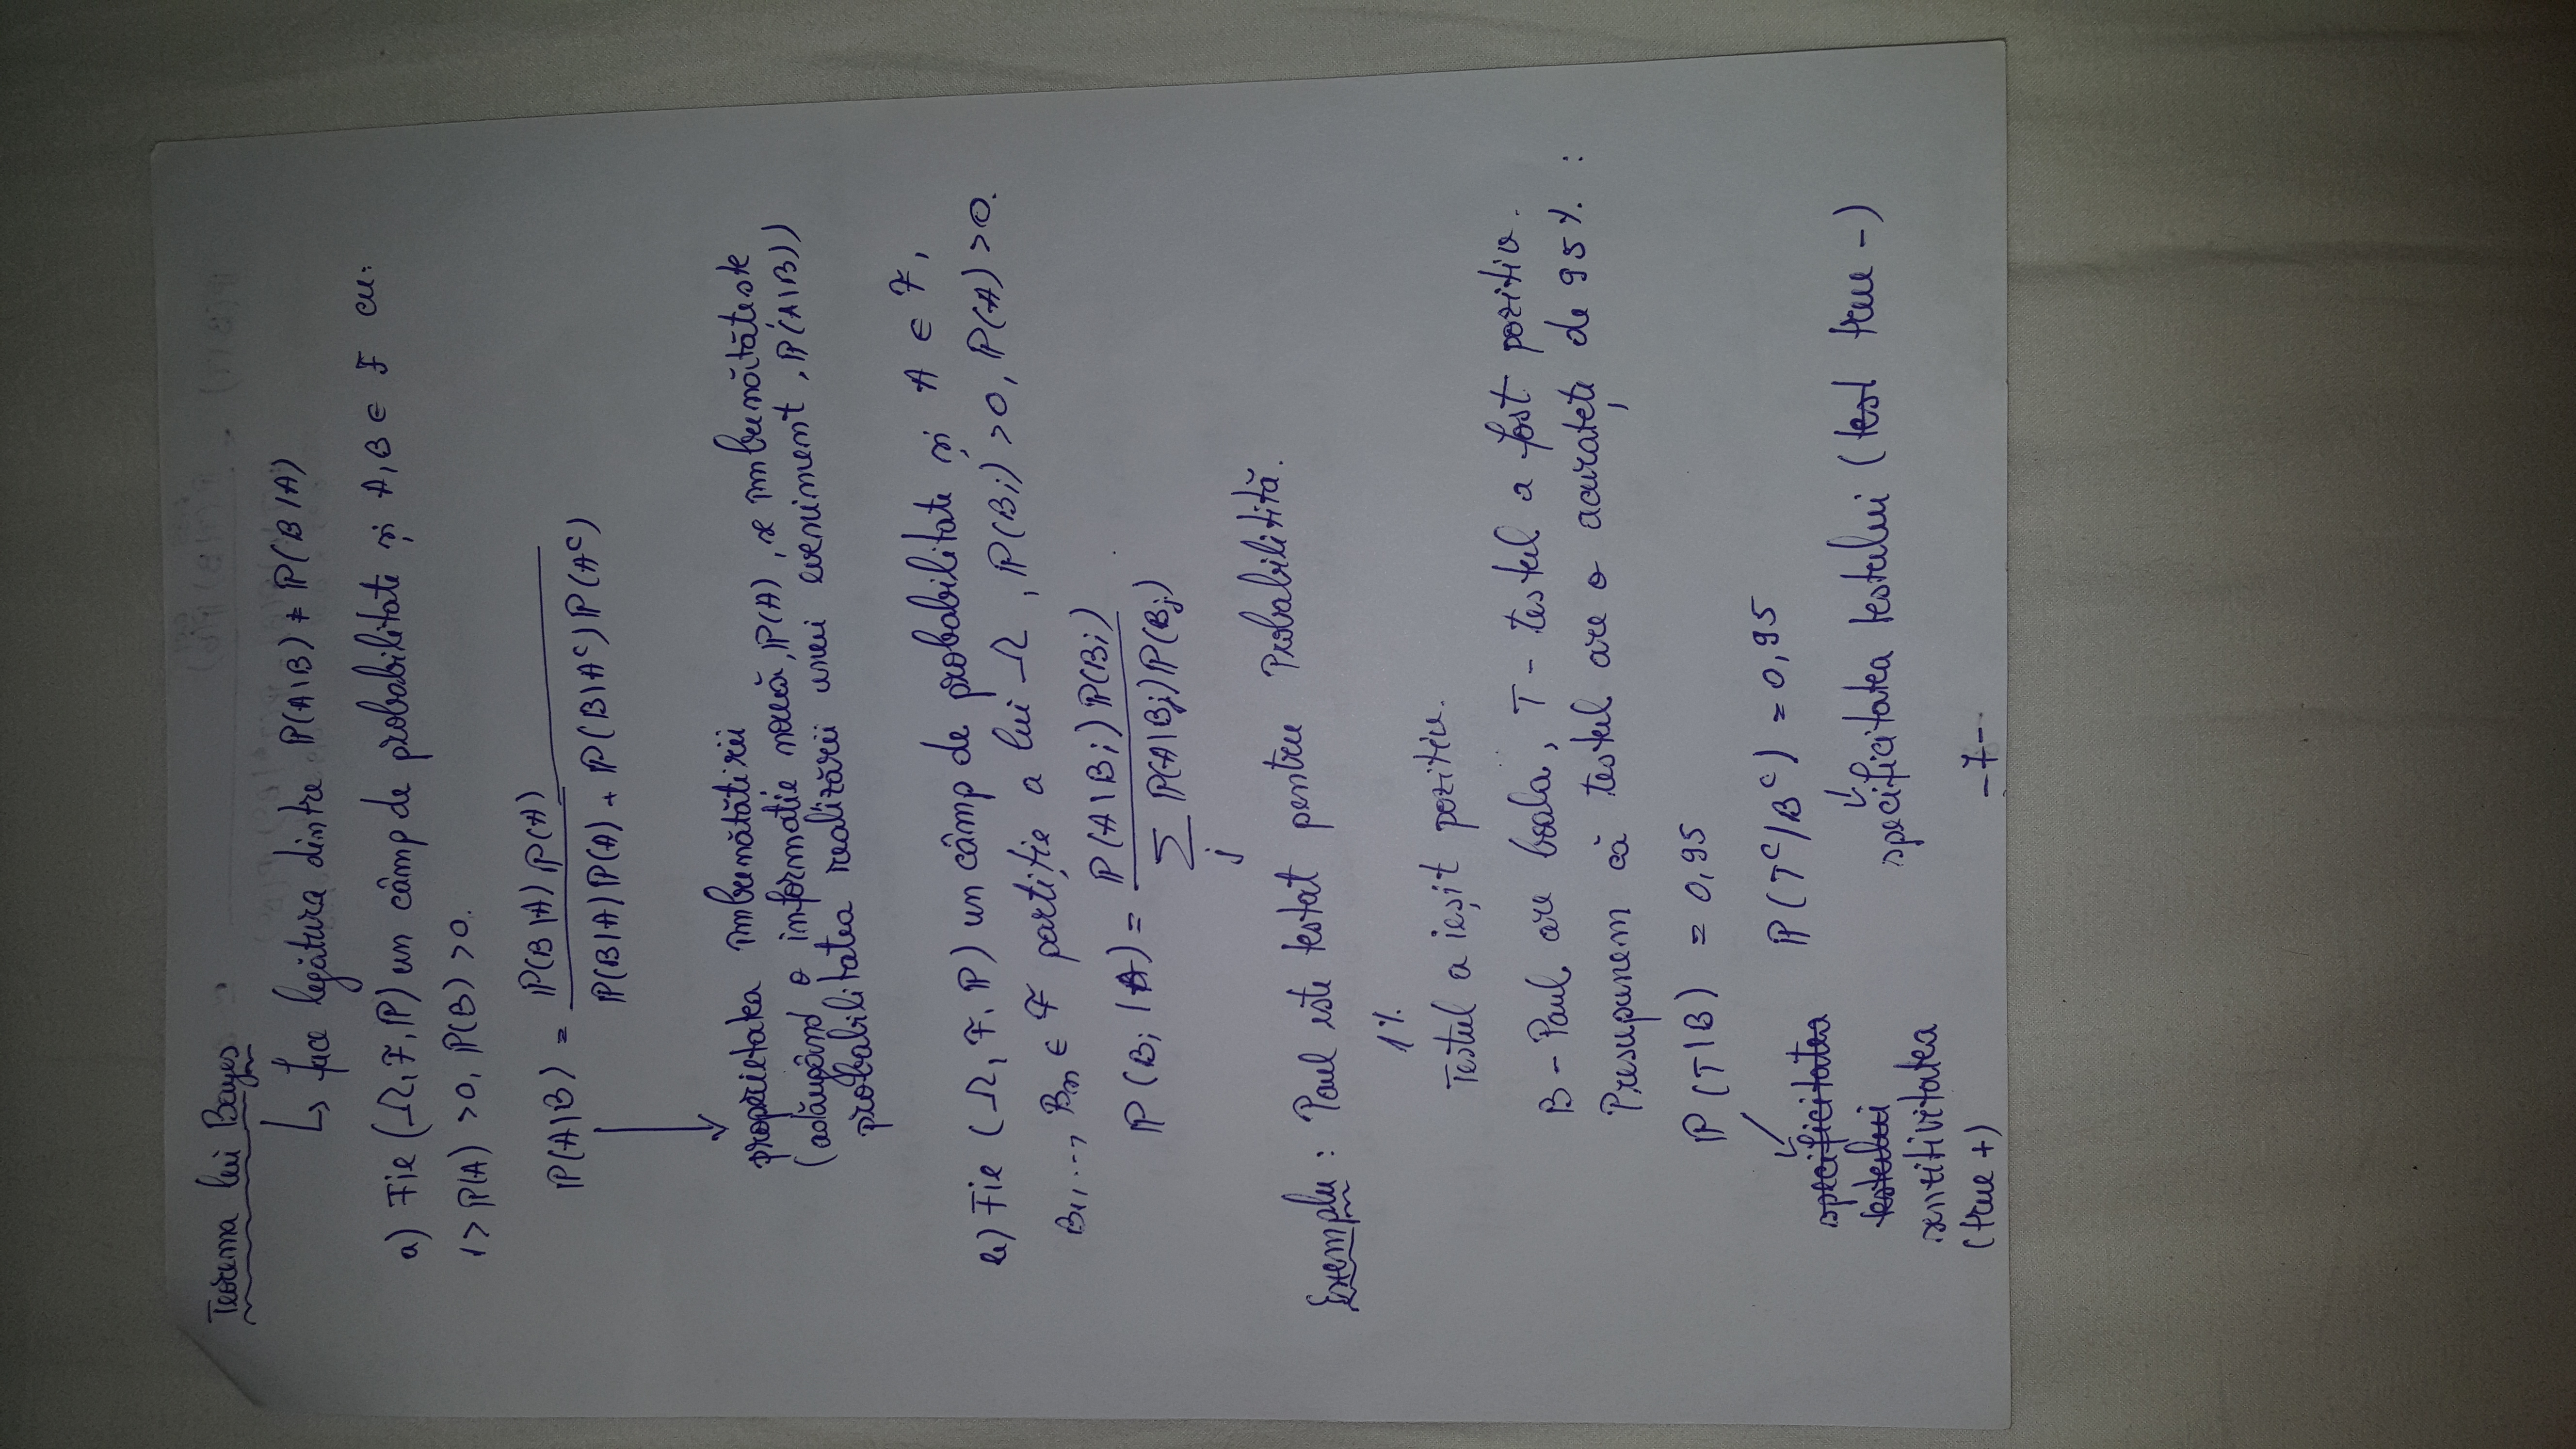 Teorema lui Bayes
↳ face legătura dintre ℙ(A|B) ≠ ℙ(B|A)
a) Fie (Ω, F, ℙ) un câmp de probabilitate și A, B ∈ F cu:
1 > ℙ(A) > 0, ℙ(B) > 0.
ℙ(A|B) = ℙ(B|A) ℙ(A) / ℙ(B|A) ℙ(A) + ℙ(B|Aᶜ) ℙ(Aᶜ)
proprietatea îmbunătățirii
(adăugând o informație nouă, ℙ(A), se îmbunătățește
probabilitatea realizării unui eveniment, ℙ(A|B))
b) Fie (Ω, F, ℙ) un câmp de probabilitate și A ∈ F,
B₁, ..., Bₙ ∈ F partiție a lui Ω, ℙ(Bᵢ) > 0, ℙ(A) > 0.
ℙ(Bᵢ|A) = ℙ(A|Bᵢ) ℙ(Bᵢ) / Σ ℙ(A|Bⱼ) ℙ(Bⱼ)
j
Exemplu: Paul este testat pentru Probabilitită.
1%
Testul a ieșit pozitiv.
B - Paul are boala, T - testul a fost pozitiv.
Presupunem că testul are o acuratețe de 95%. :
ℙ(T|B) = 0,95
ℙ(Tᶜ/Bᶜ) = 0,95
specificitatea
testului
senzitivitatea
(true +)
specificitatea testului (test true -)
-7-